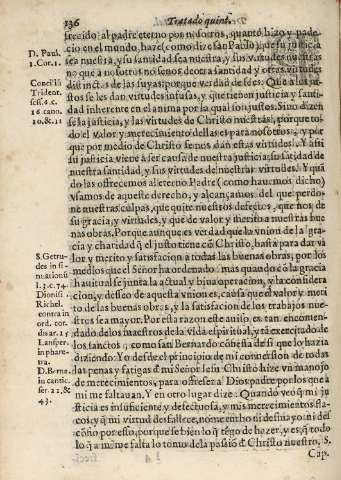 136 Tratado quinto.
frecido al padre eterno por nosotros, quanto hizo y pade-
cio en el mundo, haze (como dize san Pablo) que su justicia
sea nuestra, y su santidad sea nuestra, y sus virtudes nuestras
no que a nosotros no se nos de otra santidad y otras virtudes
distinctas de las suyas: porque verdad de fe es. Que a los ju-
stos se les dan virtudes infusas, y que tienen justicia y santi-
dad inherente en el anima por la qual son justos. Sino dizen
se la justicia, y las virtudes de Christo nuestras, porque to-
do el valor y merecimiento dellas es para nosotros, y por
que por medio de Christo se nos dan estas virtudes. Y assi
su justicia viene a ser causa de nuestra justicia, su santidad de
nuestra santidad, y sus virtudes de nuestras virtudes. Y quã
do las ofrecemos al eterno Padre (como hauemos dicho)
vsamos de aqueste derecho, y alcançamos del que perdo-
ne nuestras culpas, que quite nuestros defectos, que nos de
su gracia, y virtudes, y que de valor y merito a nuestras bue
nas obras. Porque aunque es verdad que la vnion de la gra-
cia y charidad q̃ el justo tiene cõ Christo, basta para dar va
lor y merito y satisfacion a todas las buenas obras, por los
medios que el Señor ha ordenado: mas quando cõ la gracia
habitual se junta la actual y biua operacion, y la considera
cion, y desseo de aquesta vnion es, causa que el valor y meri
to de las buenas obras, y la satisfacion de los trabajos nue-
stros sea mayor. Por esta razon este auiso es tan encomen-
dado de los maestros de la vida espiritual, y tã exercitado de
los sanctos: como san Bernardo cõfiessa de si que lo hazia
diziendo: Yo desde el principio de mi conuersion de todas
las penas y fatigas de mi Señor Iesu Christo hize vn manojo
de merecimientos, para offrescer a Dios padre por los que a
mi me faltauan. Y en otro lugar dize. Quando veo q̃ mi ju
sticia es insuficiente y defectuosa, y mis merecimientos fla-
cos, y q̃ mi virtud desfallece, no me turbo ni desmayo: ni des
cõfio por esso, porque se bien lo q̃ tẽgo de hazer, y es, q̃ todo
lo q̃ a mi me falta lo tomo de la passiõ d̃ Christo nuestro, S.
Cap.
D. Paul.
1. Cor. 1.
Conciliũ
Trident.
sess. 6. c.
16 cano.
10. & 11
S. Getru-
des in si-
nuationũ
l. 3. c. 74.
Dionisi
Richel.
contra in
ord. cor.
dis ar. 15
Lansper.
in phare-
tra.
D. Berna.
in cantic.
ser. 22, &
43.